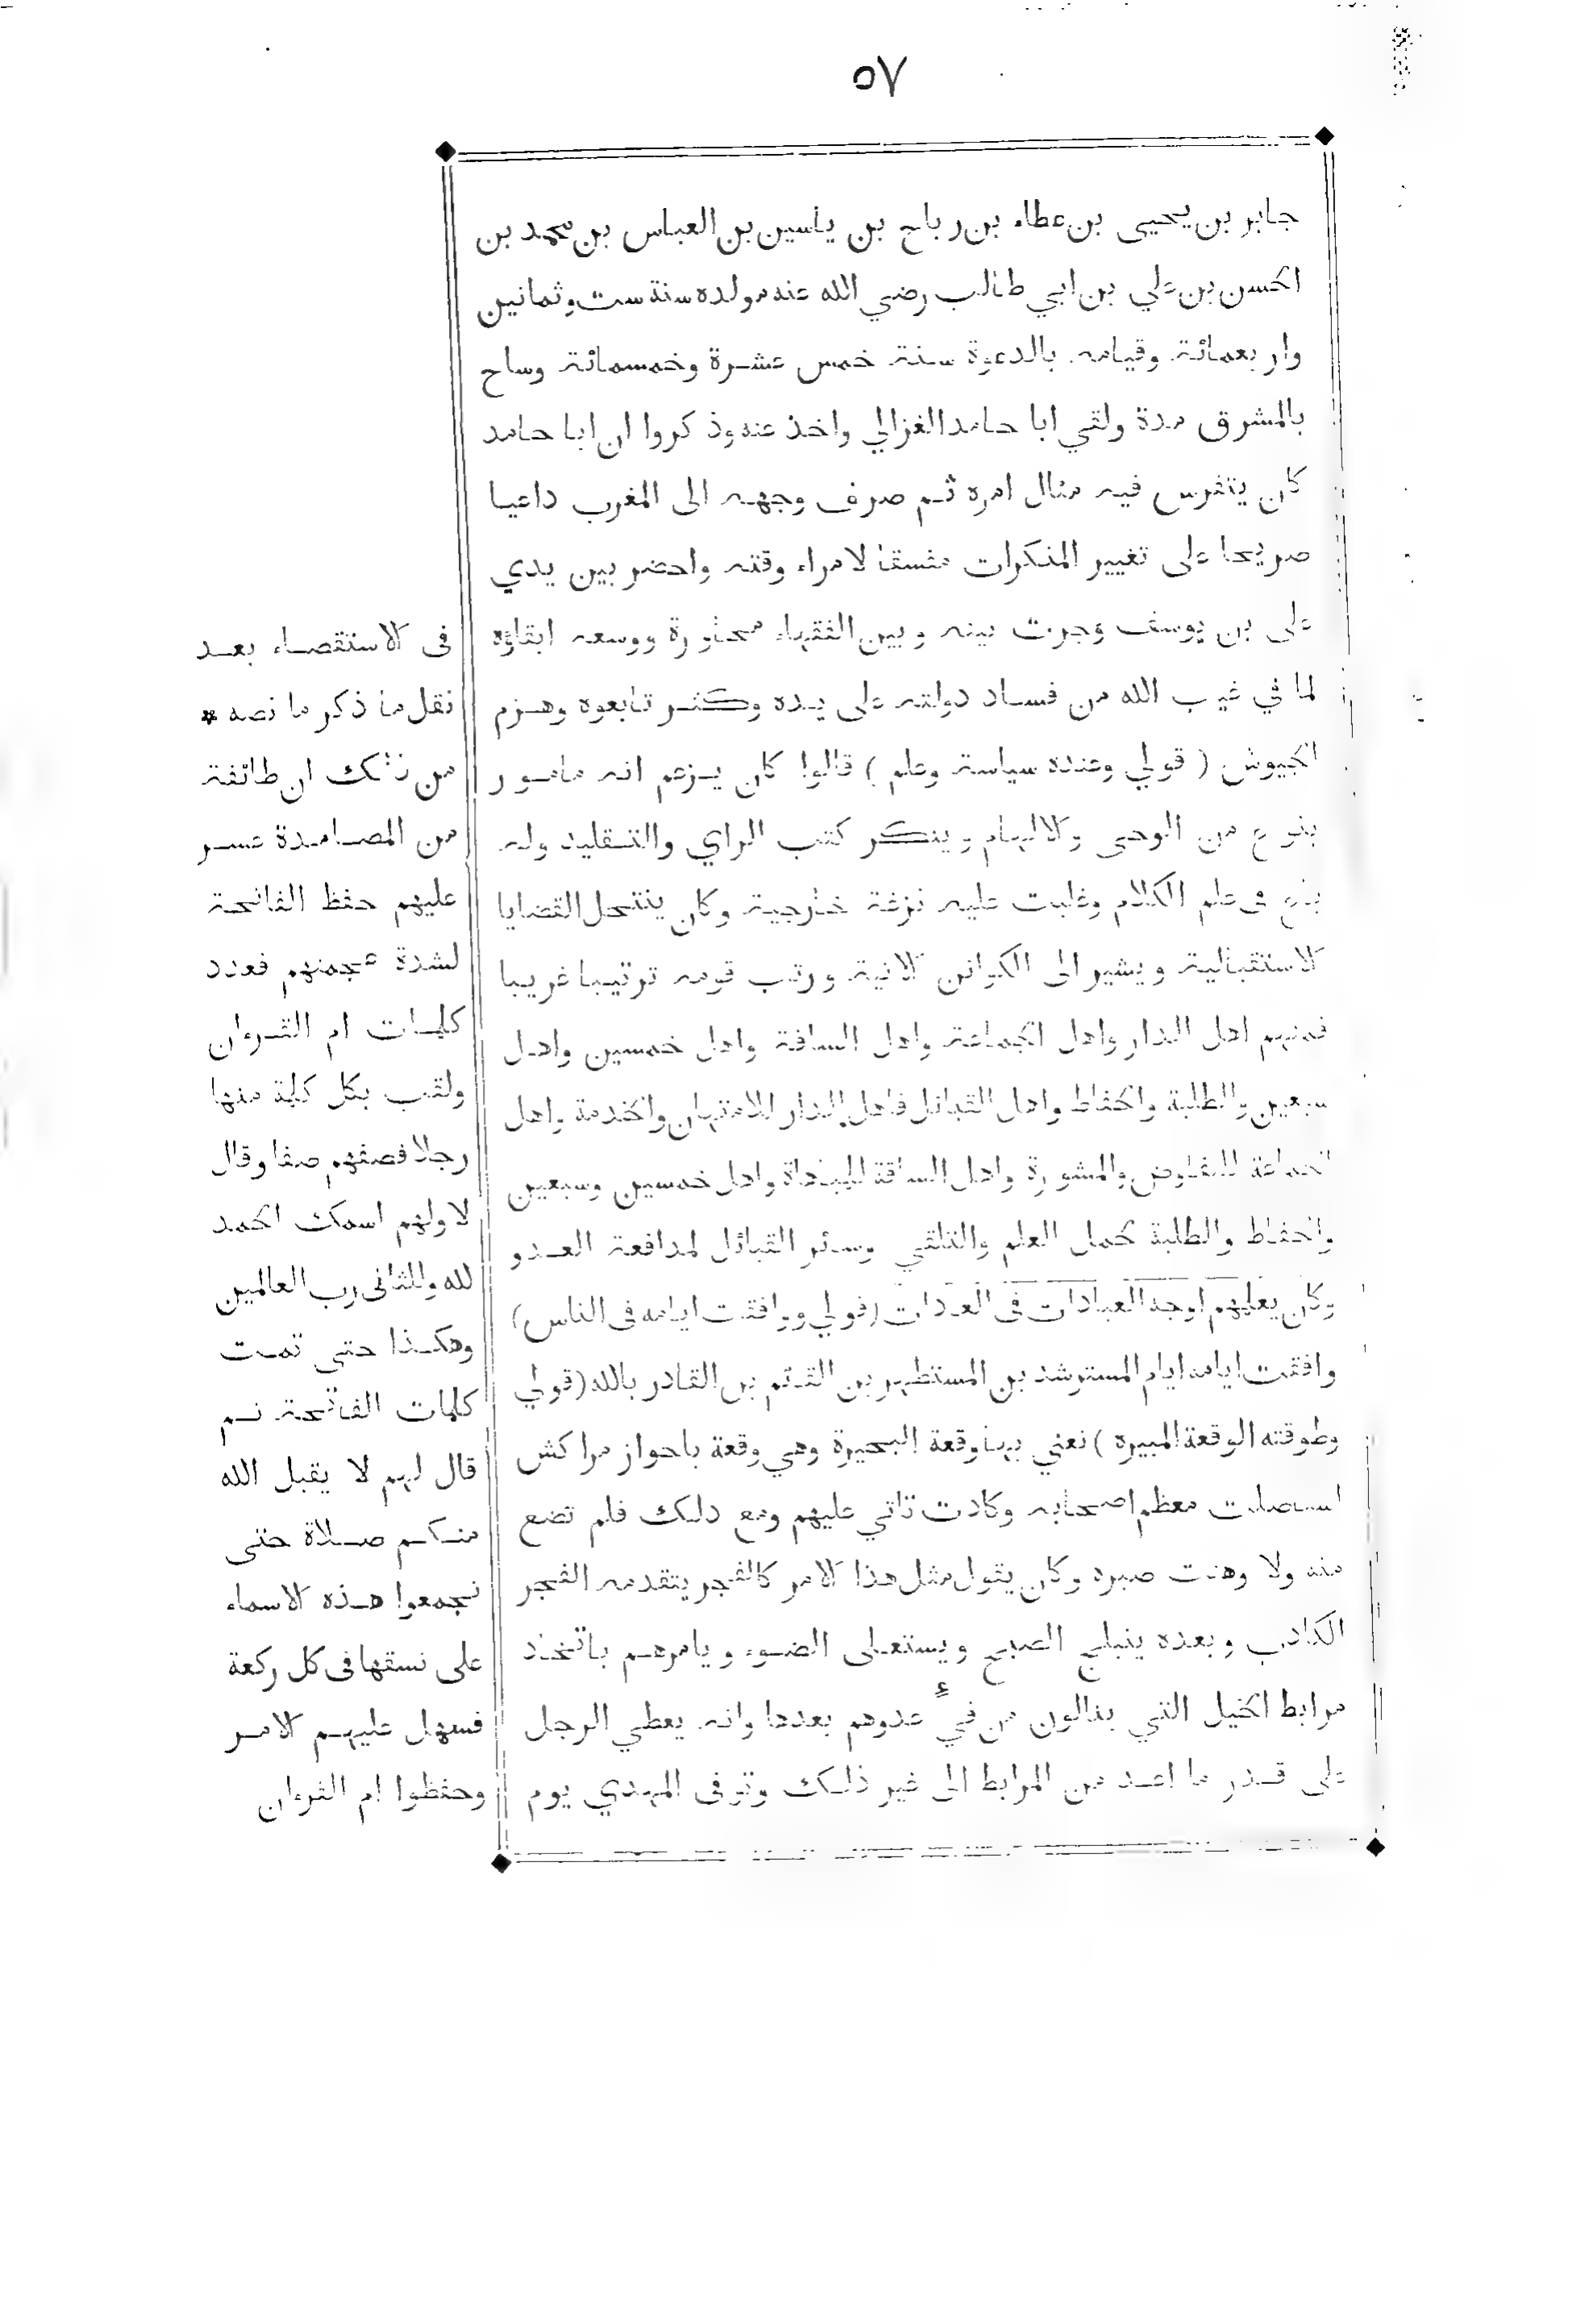 ٥٧
جابر بن يحيى بن عطاء بن رباح بن ياسين بن العباس بن محمد بن
الحسن بن علي بن ابي طالب رضي الله عنه مولده سنة ست وثمانين
واربعمائة وقيامه بالدعوة سنة خمس عشرة وخمسمائة وساح
بالمشرق مدة ولقي ابا حامد الغزالي واخذ عنه وذكروا ان ابا حامد
كان يتفرس فيه مثال امره ثم صرف وجهه الى المغرب داعيا
صريحا على تغيير المنكرات مفسقا لامراء وقته واحضر بين يدي
على بن يوسف وجرت بينه وبين الفقهاء محاورة ووسعه ابقاؤه
لما في غيب الله من فساد دولته على يده وكثر تابعوه وهزم
الجيوش ( قولي وعنده سياسة وعلم ) قالوا كان يزعم انه مامور
بنوع من الوحى والالهام وينكر كتب الراي والتقليد وله
باع فى علم الكلام وغلبت عليه نزغة خارجية وكان ينتحل القضايا
الاستقبالية ويشير الى الكوائن الاتية ورتب قومه ترتيبا غريبا
فمنهم اهل الدار واهل الجماعة واهل الساقة واهل خمسين واهل
سبعين والطلبة والحفاظ واهل القبائل فاهل الدار للامتهان والخدمة واهل
الجماعة للتفاوض والمشورة واهل الساقة للمباهاة واهل خمسين وسبعين
والحفاظ والطلبة لحمل العلم والتلقي وسائر القبائل لمدافعة العدو
وكان يعلمهم اوجه العبادات فى العادات (قولي ووافقت ايامه فى الناس)
وافقت ايامه ايام المسترشد بن المستظهر بن القائم بن القادر بالله (قولي
وطوقته الوقعة المبيره ) نعني بها وقعة البحيرة وهي وقعة باحواز مراكش
استاصلت معظم اصحابه وكادت تاتي عليهم ومع ذلك فلم تضع
منه ولا وهنت صبره وكان يقول مثل هذا الامر كالفجر يتقدمه الفجر
الكاذب وبعده ينبلج الصبح ويستعلى الضوء ويامرهم باتخاذ
مرابط الخيل التي ينالون من فيء عدوهم بعدها وانه يعطي الرجل
على قدر ما اعد من المرابط الى غير ذلك وتوفى المهدي يوم
فى الاستقصاء بعد
نقل ما ذكر ما نصه *
من ذلك ان طائفة
من المصامدة عسر
عليهم حفظ الفاتحة
لشدة عجمتهم فعدد
كلمات ام القرءان
ولقب بكل كلمة منها
رجلا فصفهم صفا وقال
لاولهم اسمك الحمد
لله والثانى رب العالمين
وهكذا حتى تمت
كلمات الفاتحة ثم
قال لهم لا يقبل الله
منكم صلاة حتى
تجمعوا هذه الاسماء
على نسقها فى كل ركعة
فسهل عليهم الامر
وحفظوا ام القرءان